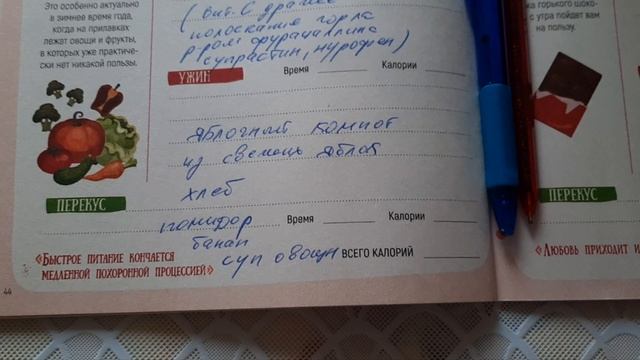 Это особенно актуально
в зимнее время года,
когда на прилавках
лежат овощи и фрукты,
в которых уже практиче-
ски нет никакой пользы.
(вит. С драже
полоскание горла
р-ром фурацилина
супрастин, нурофен)
УЖИН Время Калории
яблочный компот
из свежих яблок
хлеб
ПЕРЕКУС
помидор Время Калории
банан
суп овощн ВСЕГО КАЛОРИЙ
«БЫСТРОЕ ПИТАНИЕ КОНЧАЕТСЯ
МЕДЛЕННОЙ ПОХОРОННОЙ ПРОЦЕССИЕЙ»
44
горького шоко-
с утра пойдет вам
на пользу.
ПЕРЕКУС
«ЛЮБОВЬ ПРИХОДИТ И